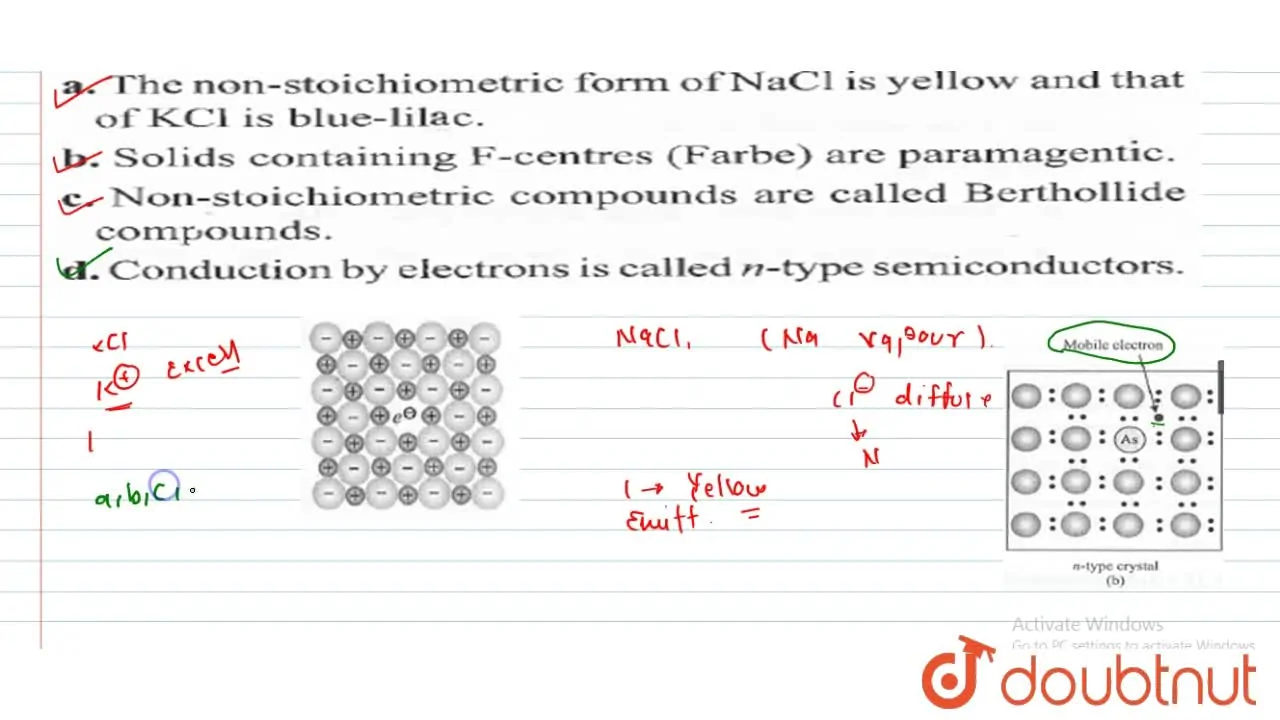 a. The non-stoichiometric form of NaCl is yellow and that
of KCl is blue-lilac.
b. Solids containing F-centres (Farbe) are paramagentic.
c. Non-stoichiometric compounds are called Berthollide
compounds.
d. Conduction by electrons is called n-type semiconductors.
KCl
K⊕ excess
1
a, b, c,
e⊖
NaCl, (Na vapour).
Cl⊖ diffuse
↓
N
1 → Yellow
Emitt.
Mobile electron
As
n-type crystal
(b)
Activate Windows
Go to PC settings to activate Windows.
doubtnut